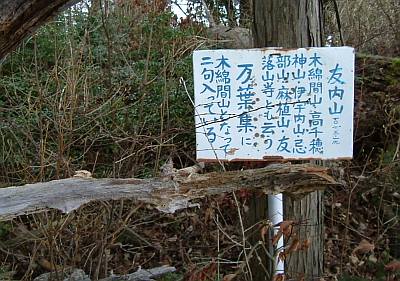 友内山
木綿間山・高千穂
神山・伊千内山・忌
部山・麻植山・友
落山等とも云う
万葉集に
木綿間山となって
二句入っている